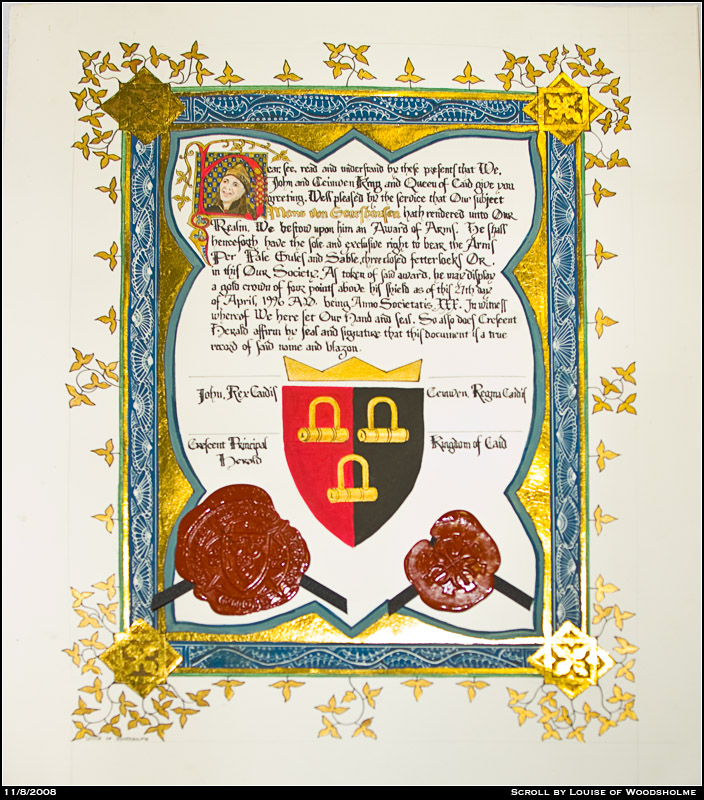 Hear, see, read and understand by these presents that We,
John and Ceinwen King and Queen of Caid give you
greeting. Well pleased by the service that Our subject
Mons von Goarshausen hath rendered unto Our
Realm, We bestow upon him an Award of Arms. He shall
henceforth have the sole and exclusive right to bear the Arms
Per Pale Gules and Sable, three closed fetterlocks Or,
in this Our Society. As token of said award, he may display
a gold crown of four points above his shield as of this 27th day
of April, 1996 A.D. being Anno Societatis XXX. In witness
whereof We here set Our Hand and seal. So also does Crescent
Herald affirm by seal and signature that this document is a true
record of said name and blazon.
John, Rex Caidis
Ceinwen, Regina Caidis
Crescent Principal
Herald
Kingdom of Caid
11/8/2008
Scroll by Louise of Woodsholme